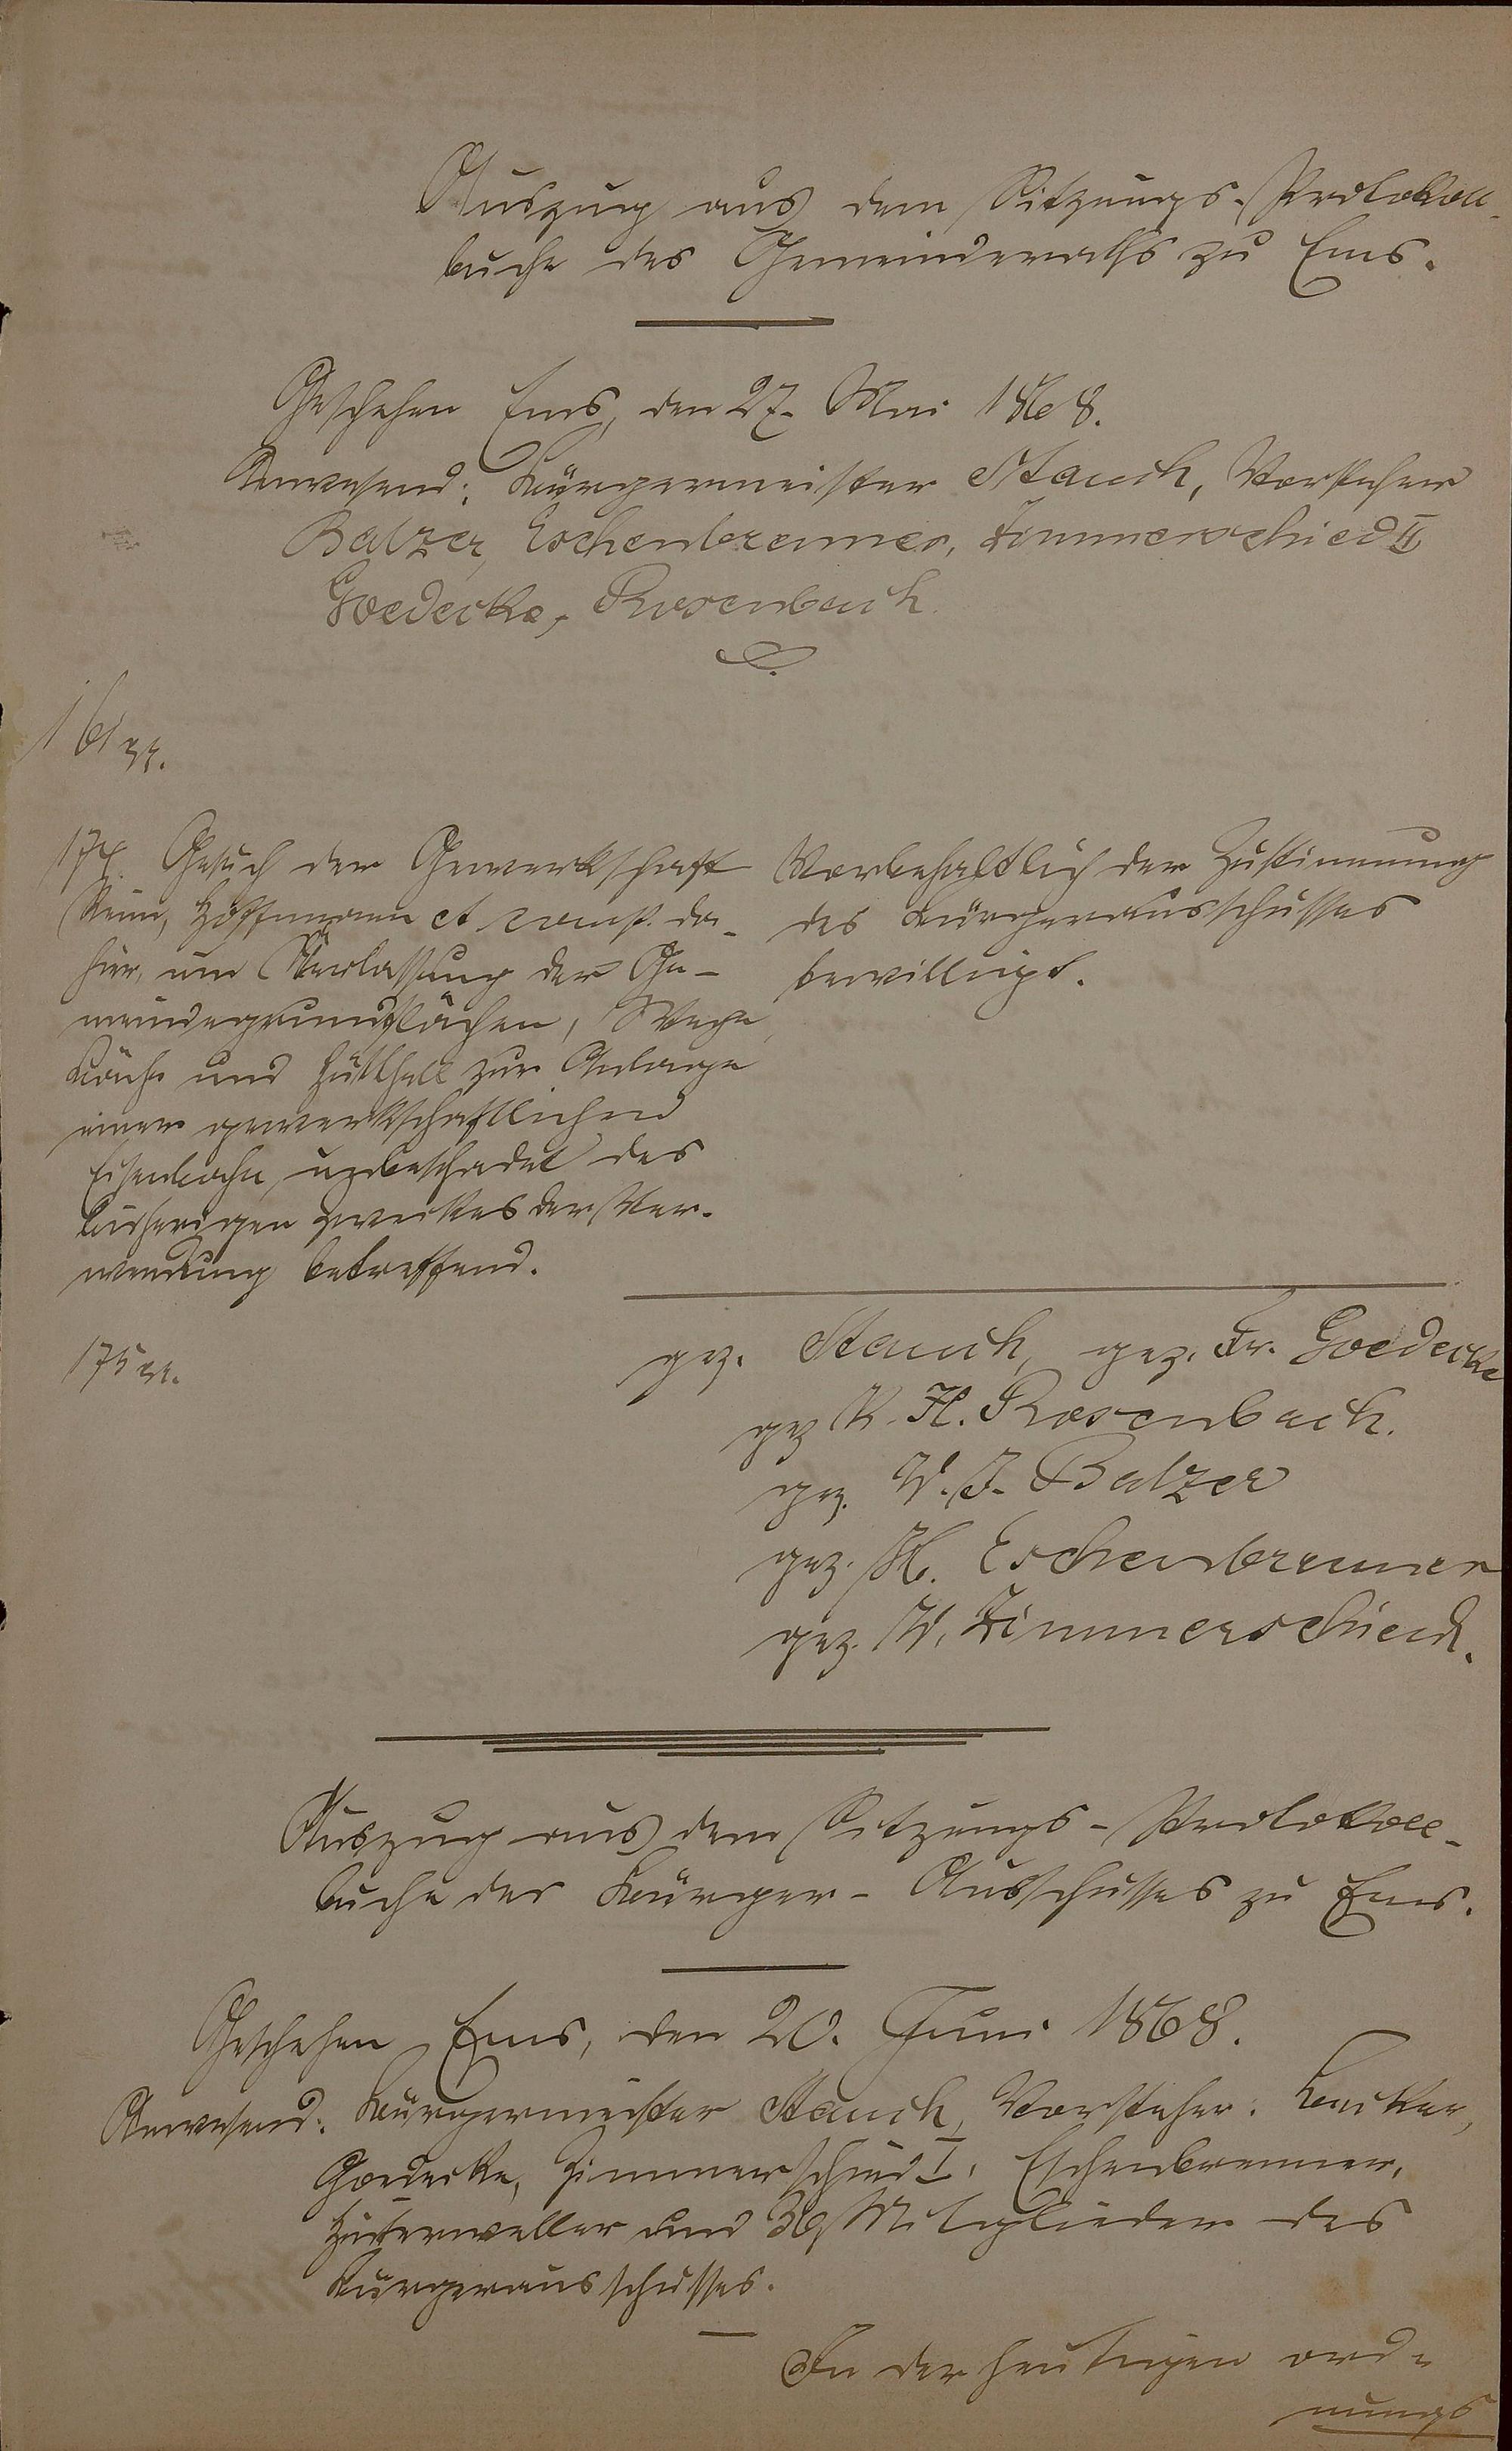 Auszug aus dem Sitzungs-Protokoll-
buche des Gemeinderaths zu Ems.
Geschehen Ems, den 27. Mai 1868.
Anwesend: Bürgermeister Stauch, Vorsteher
Balzer, Eschenbrenner, Zimmerschied II
Goedecke, Rosenbach.
174. Gesuch der Gewerkschaft
Remy, Hoffmann et comp. da-
hier, um Überlassung der Ge-
meindegrundflächen, Wege,
Bäche und zur Anlage
einer gewerkschaftlichen
Eisenbahn unbeschadet des
bisherigen Zweckes der Ver-
wendung betreffend.
Vorbehaltlich der Zustimmung
des Bürgerausschusses
bewilligt.
175 pp.
gez. Stauch, gez. Fr. Goedecke
gez. K. H. Rosenbach.
gez. W. J. Balzer
gez. H. Eschenbrenner
gez. W. Zimmerschied.
Auszug aus dem Sitzungs-Protokoll-
buche des Bürger-Ausschusses zu Ems.
Geschehen Ems, den 20. Juni 1868.
Anwesend: Bürgermeister Stauch, Vorsteher:
Goedecke, Zimmerschied I, Eschenbrenner,
und 36 Mitglieder des
Bürgerausschusses.
In der heutigen ord-
nungs